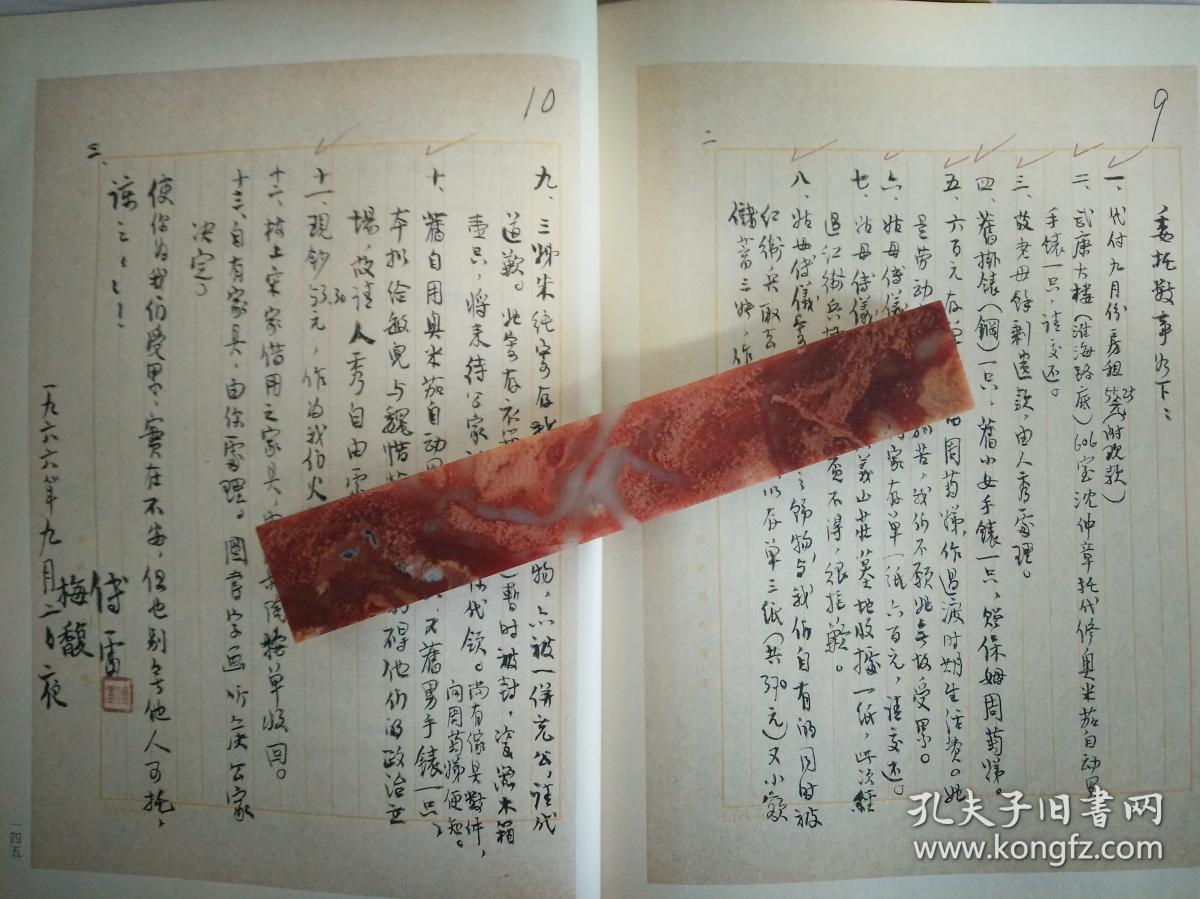 9
委托数事如下：
一、代付九月份房租55.25元（附现款）
二、武康大楼（淮海路底）606室沈仲章托代修奥米茄自动男
手錶一只，请交还。
三、故老母餘剩遗款，由人秀處理。
四、舊掛錶（鋼）一只，舊小女手錶一只，贈保姆周菊娣。
五、六百元存
由周菊娣，作過渡时期生活费。她
是劳动
苦，我们不願她无故受累。
六、姑母傅儀
家存单一纸六百元，请交还。
七、姑母傅儀
義山莊墓地收據一纸，此次經
过红衛兵
不得，很抱歉。
八、姑母傅儀寄
之飾物，与我们自有的同时被
红衛兵取去
以存单三纸（共370元）又小额
儲蓄三
，作
二
10
九、三姊朱纯寄存我
物，亦被一併充公，请代
道歉。她寄存衣
暫时被封，瓷器木箱
壹只，将来待公家
代领。尚有傢具数件，
问周菊娣便知。
十、舊自用奥米茄自动
又舊男手錶一只，
本拟给敏兒与魏惜
得他们的政治立
場，故请人秀自由
十一、现钞53.30元，作为我们火
十二、楼上宋家借用之家具，
陶
单收回。
十三、自有家具，由你處理。圖書字画听候公家
决定。
使你为我们受累，实在不安，但也别无他人可托，
谅之谅之！
三、
傅雷
梅馥
一九六六年九月二日夜
一四五
孔夫子旧书网
www.kongfz.com